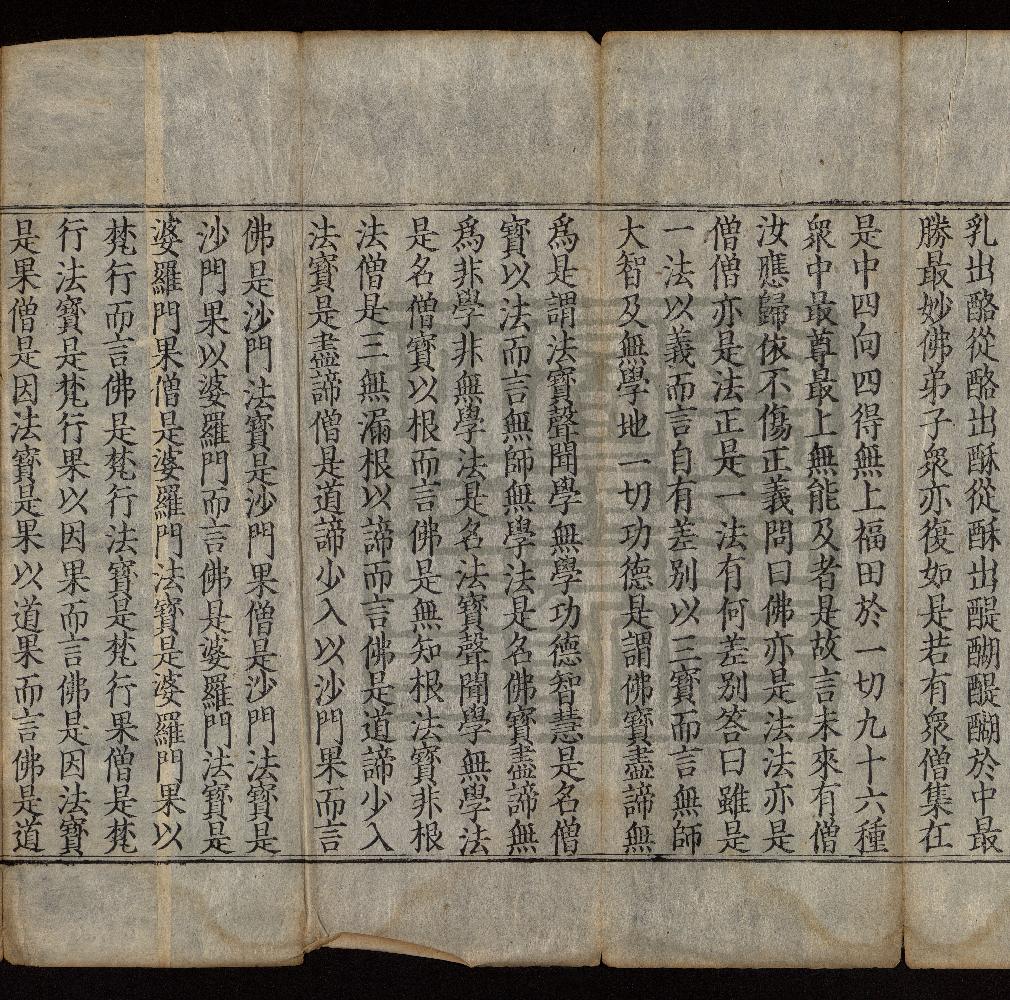 乳出酪從酪出酥從酥出醍醐醍醐於中最
勝最妙佛弟子衆亦復如是若有衆僧集在
是中四向四得無上福田於一切九十六種
衆中最尊最上無能及者是故言未來有僧
汝應歸依不傷正義問曰佛亦是法法亦是
僧僧亦是法正是一法有何差別答曰雖是
一法以義而言自有差別以三寶而言無師
大智及無學地一切功德是謂佛寶盡諦無
爲是謂法寶聲聞學無學功德智慧是名僧
寶以法而言無師無學法是名佛寶盡諦無
爲非學非無學法是名法寶聲聞學無學法
是名僧寶以根而言佛是無知根法寶非根
法僧是三無漏根以諦而言佛是道諦少入
法寶是盡諦僧是道諦少入以沙門果而言
佛是沙門法寶是沙門果僧是沙門法寶是
沙門果以婆羅門而言佛是婆羅門法寶是
婆羅門果僧是婆羅門法寶是婆羅門果以
梵行而言佛是梵行法寶是梵行果僧是梵
行法寶是梵行果以因果而言佛是因法寶
是果僧是因法寶是果以道果而言佛是道